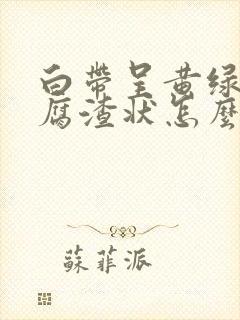 白帶呈黄绿
腐渣状怎麽
蘇菲派